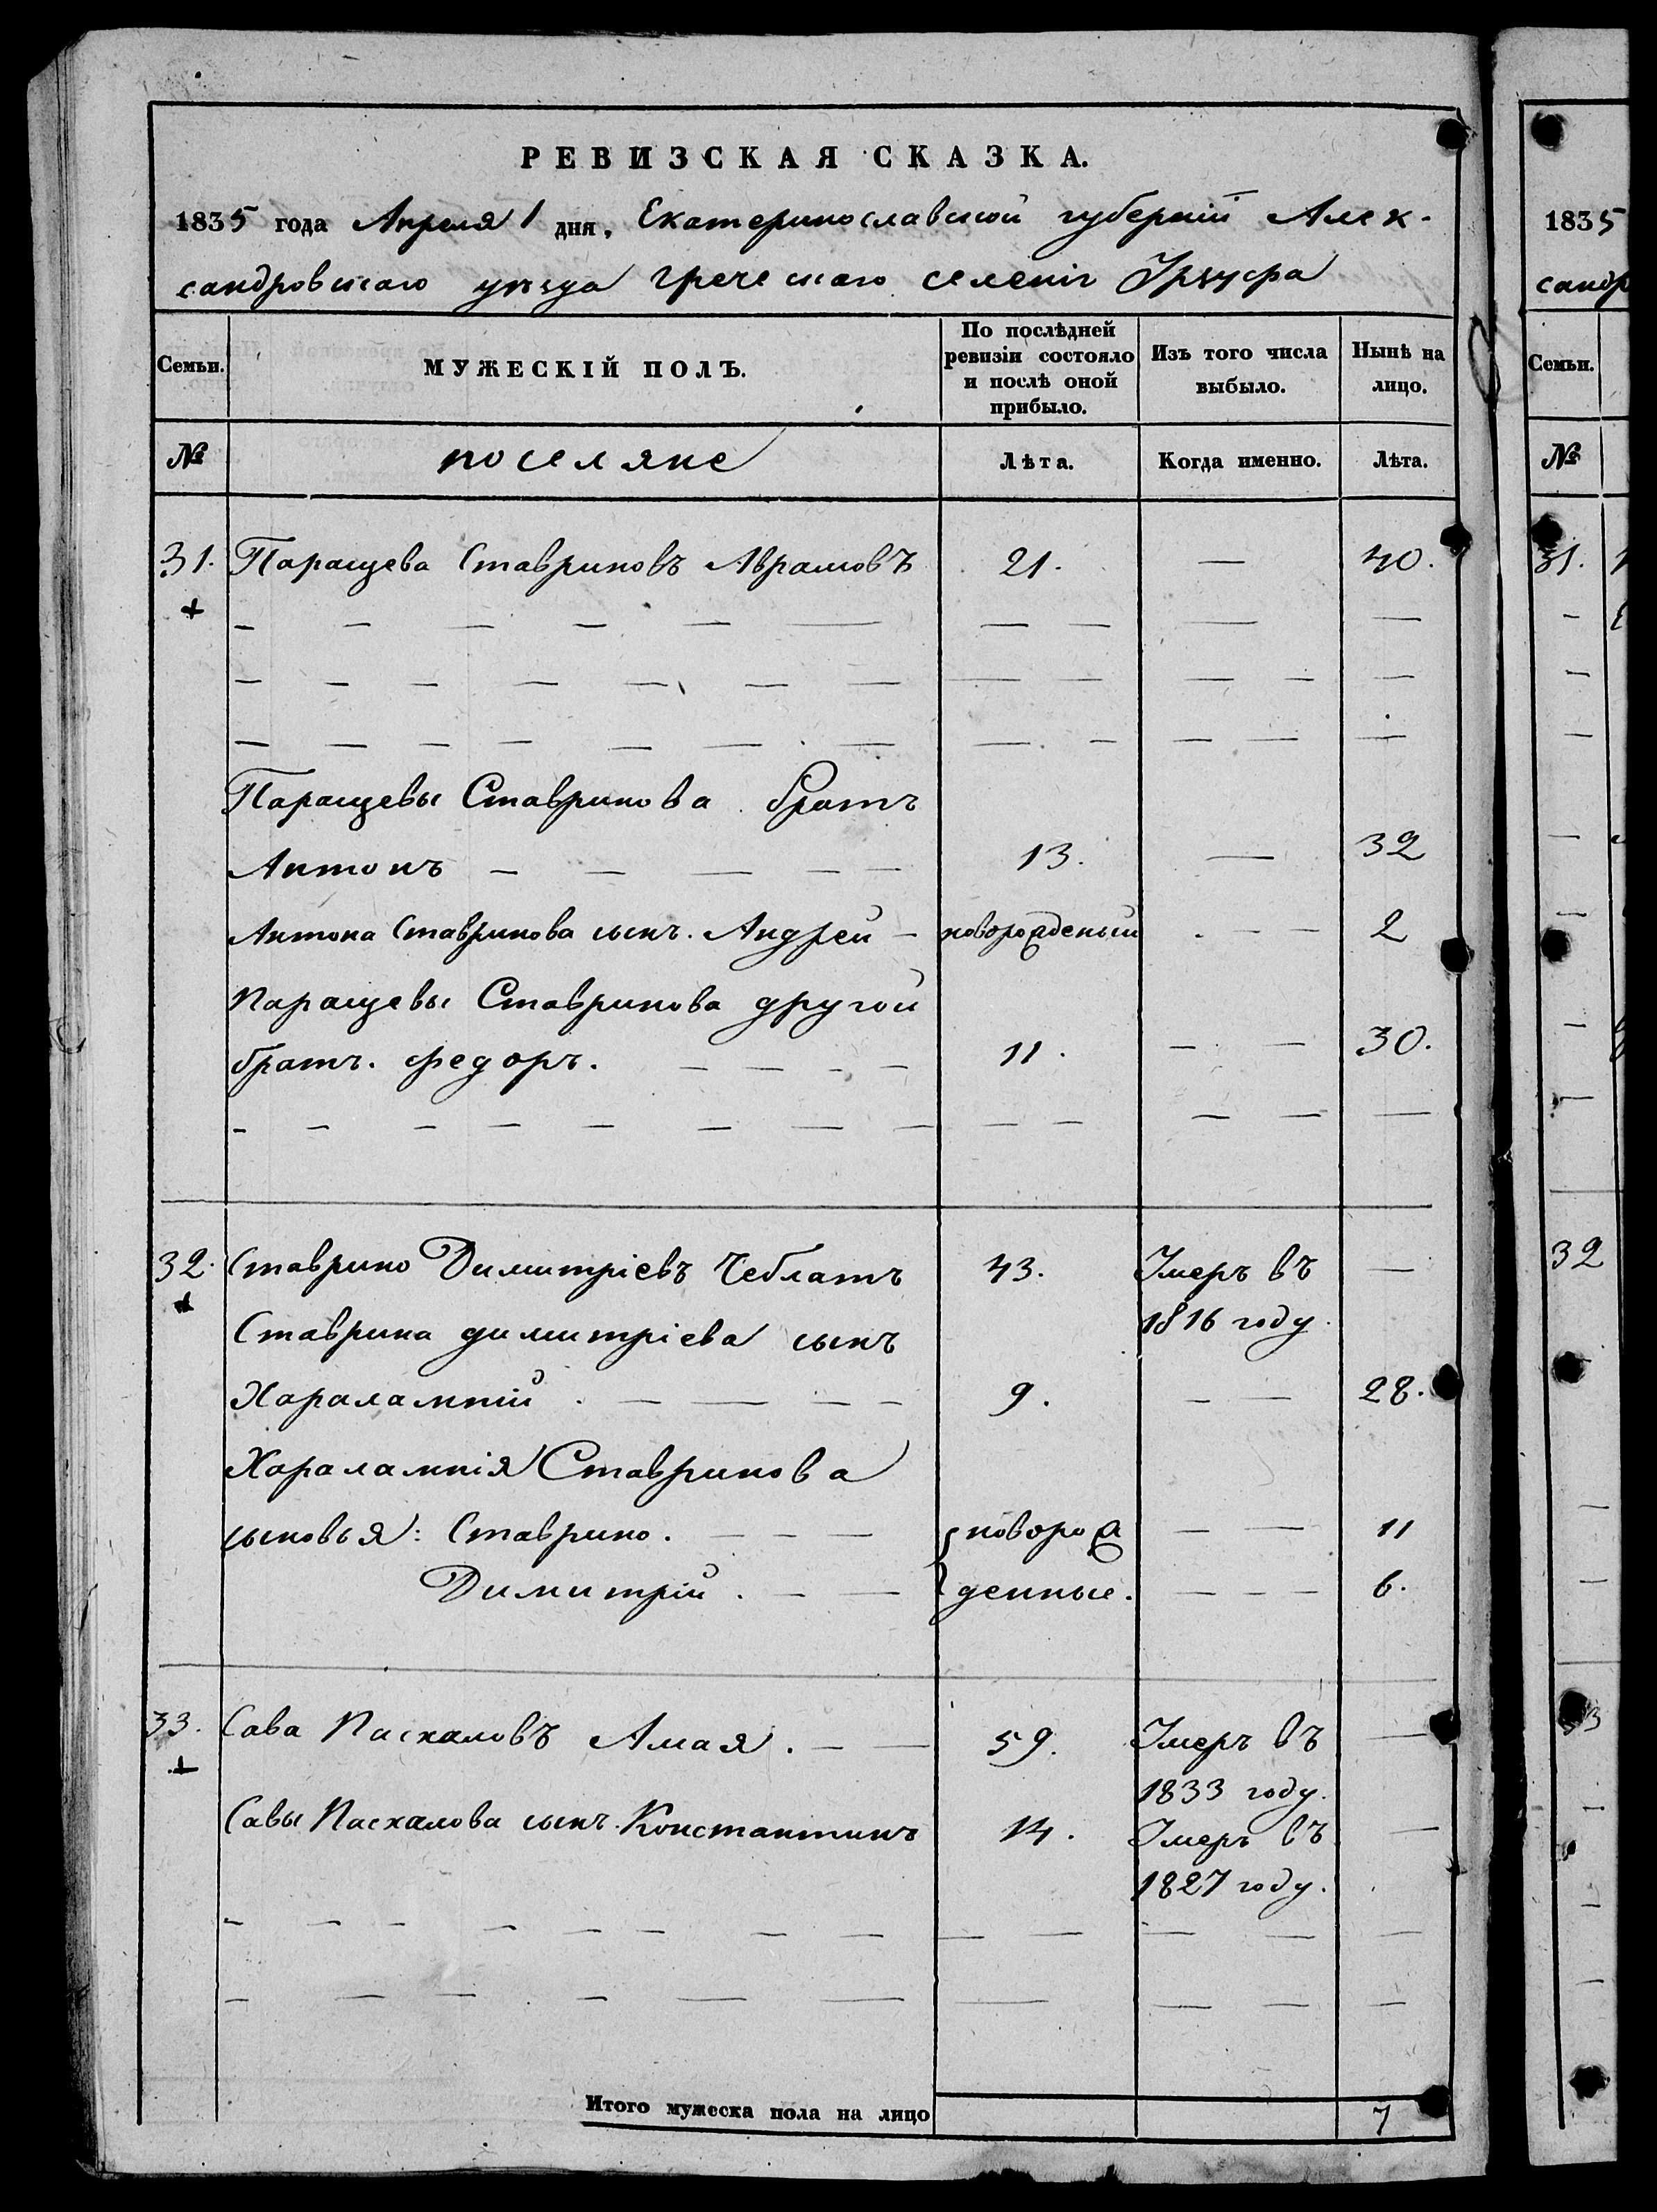 РЕВИЗСКАЯ СКАЗКА.
1835 года Апреля 1 дня, Екатеринославской губернии Алек-
сандровскаго уезда Греческаго селения
Семьи. МУЖЕСКІЙ ПОЛЪ. По послѣдней ревизіи состояло и послѣ оной прибыло. Изъ того числа выбыло. Нынѣ на лицо.
№ поселяне Лѣта. Когда именно. Лѣта.
31. Паращева Ставриновъ Аврамовъ 21. — 40.
Паращевы Ставринова братъ
Антонъ 13. — 32
Антона Ставринова сынъ. Андрей новорожденый 2
Паращевы Ставринова другой
братъ. Федоръ. 11. 30.
32. Ставрино Димитріевъ Чеблатъ 43. Умеръ въ —
Ставрина димитріева сынъ 1816 году.
Харалампій 9. 28.
Харалампія Ставринова
сыновья: Ставрино. новорож 11
Димитрій. денные. 6.
33. Сава Пасхаловъ Амая. 59. Умеръ въ —
1833 году.
Савы Пасхалова сынъ. Константинъ 14. Умеръ въ —
1827 году.
Итого мужеска пола на лицо 7
1835
сандр
Семьи.
№
31.
32
33